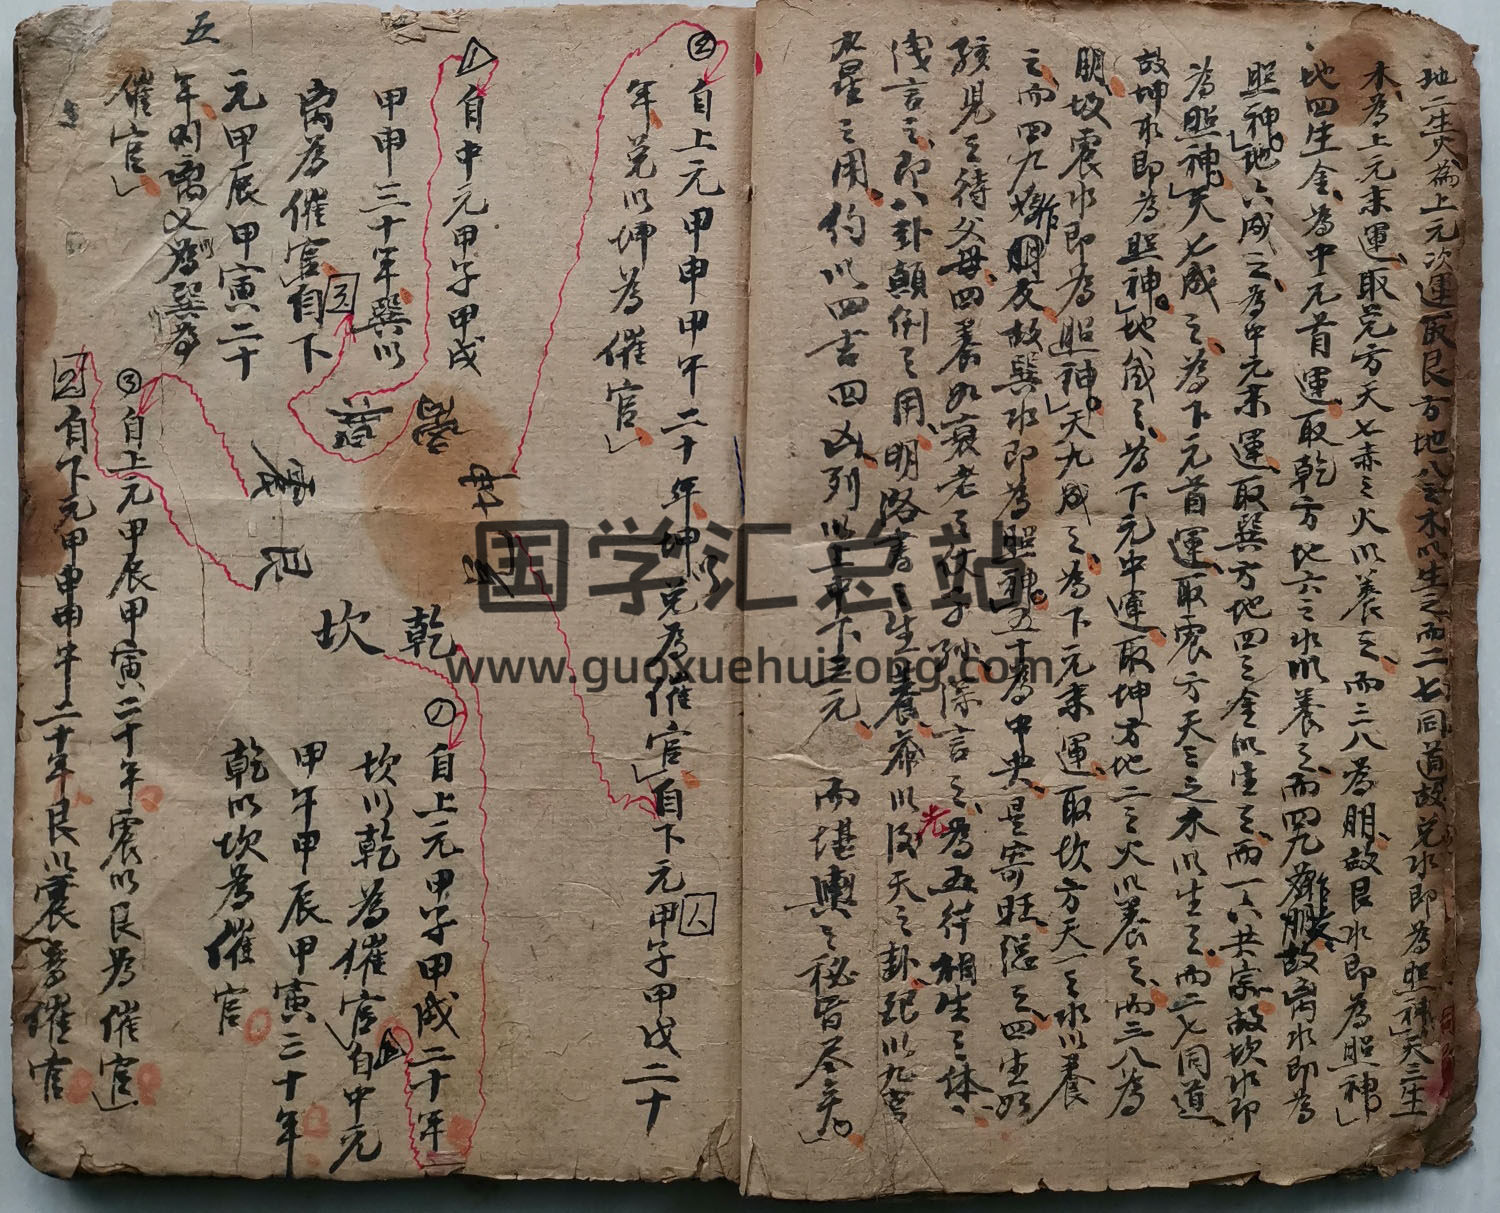 地二生火為上元次運取艮方地八之木以生之而二七同道故兌水即為照神」天三生
木為上元末運取兌方天七赤之火以養之而三八為朋故艮水即為照神」
地四生金為中元首運取乾方地六之水以養之而四九為朋故离水即為
照神」地六成之為中元末運取巽方地四之金以生之而一六共宗故坎水即
為照神」天七成之為下元首運取震方天三之木以生之而二七同道
故坤水即為照神」地八成之為下元中運取坤方地二之火以養之而三八為
朋故震水即為照神」天九成之為下元末運取坎方天一之水以養
之而四九作友故巽水即為照神五十為中央是寄旺還之四生如
孩兒之待父母四養如衰老之仗子孫深言之為五行相生之體
淺言之即八卦顛倒之用明洛書之生養希以後天之卦配以九宮
九星之用約以四吉四凶列以上中下三元而堪輿之秘旨盡矣」
② 自上元甲申甲午二十年坤以兌為催官」自下元甲子甲戌二十
年兌以坤為催官」
自中元甲子甲戌
甲申三十年巽以
离為催官」自下
元甲辰甲寅二十
年則离又為巽為
催官」
五
3
震
艮
坎
乾
① 自上元甲子甲戌二十年
坎以乾為催官」自中元
甲午甲辰甲寅三十年
乾以坎為催官
③ 自上元甲辰甲寅二十年震以艮為催官」
2 自下元甲申甲午二十年艮以震為催官
国学汇总站
www.guoxuehuizong.com